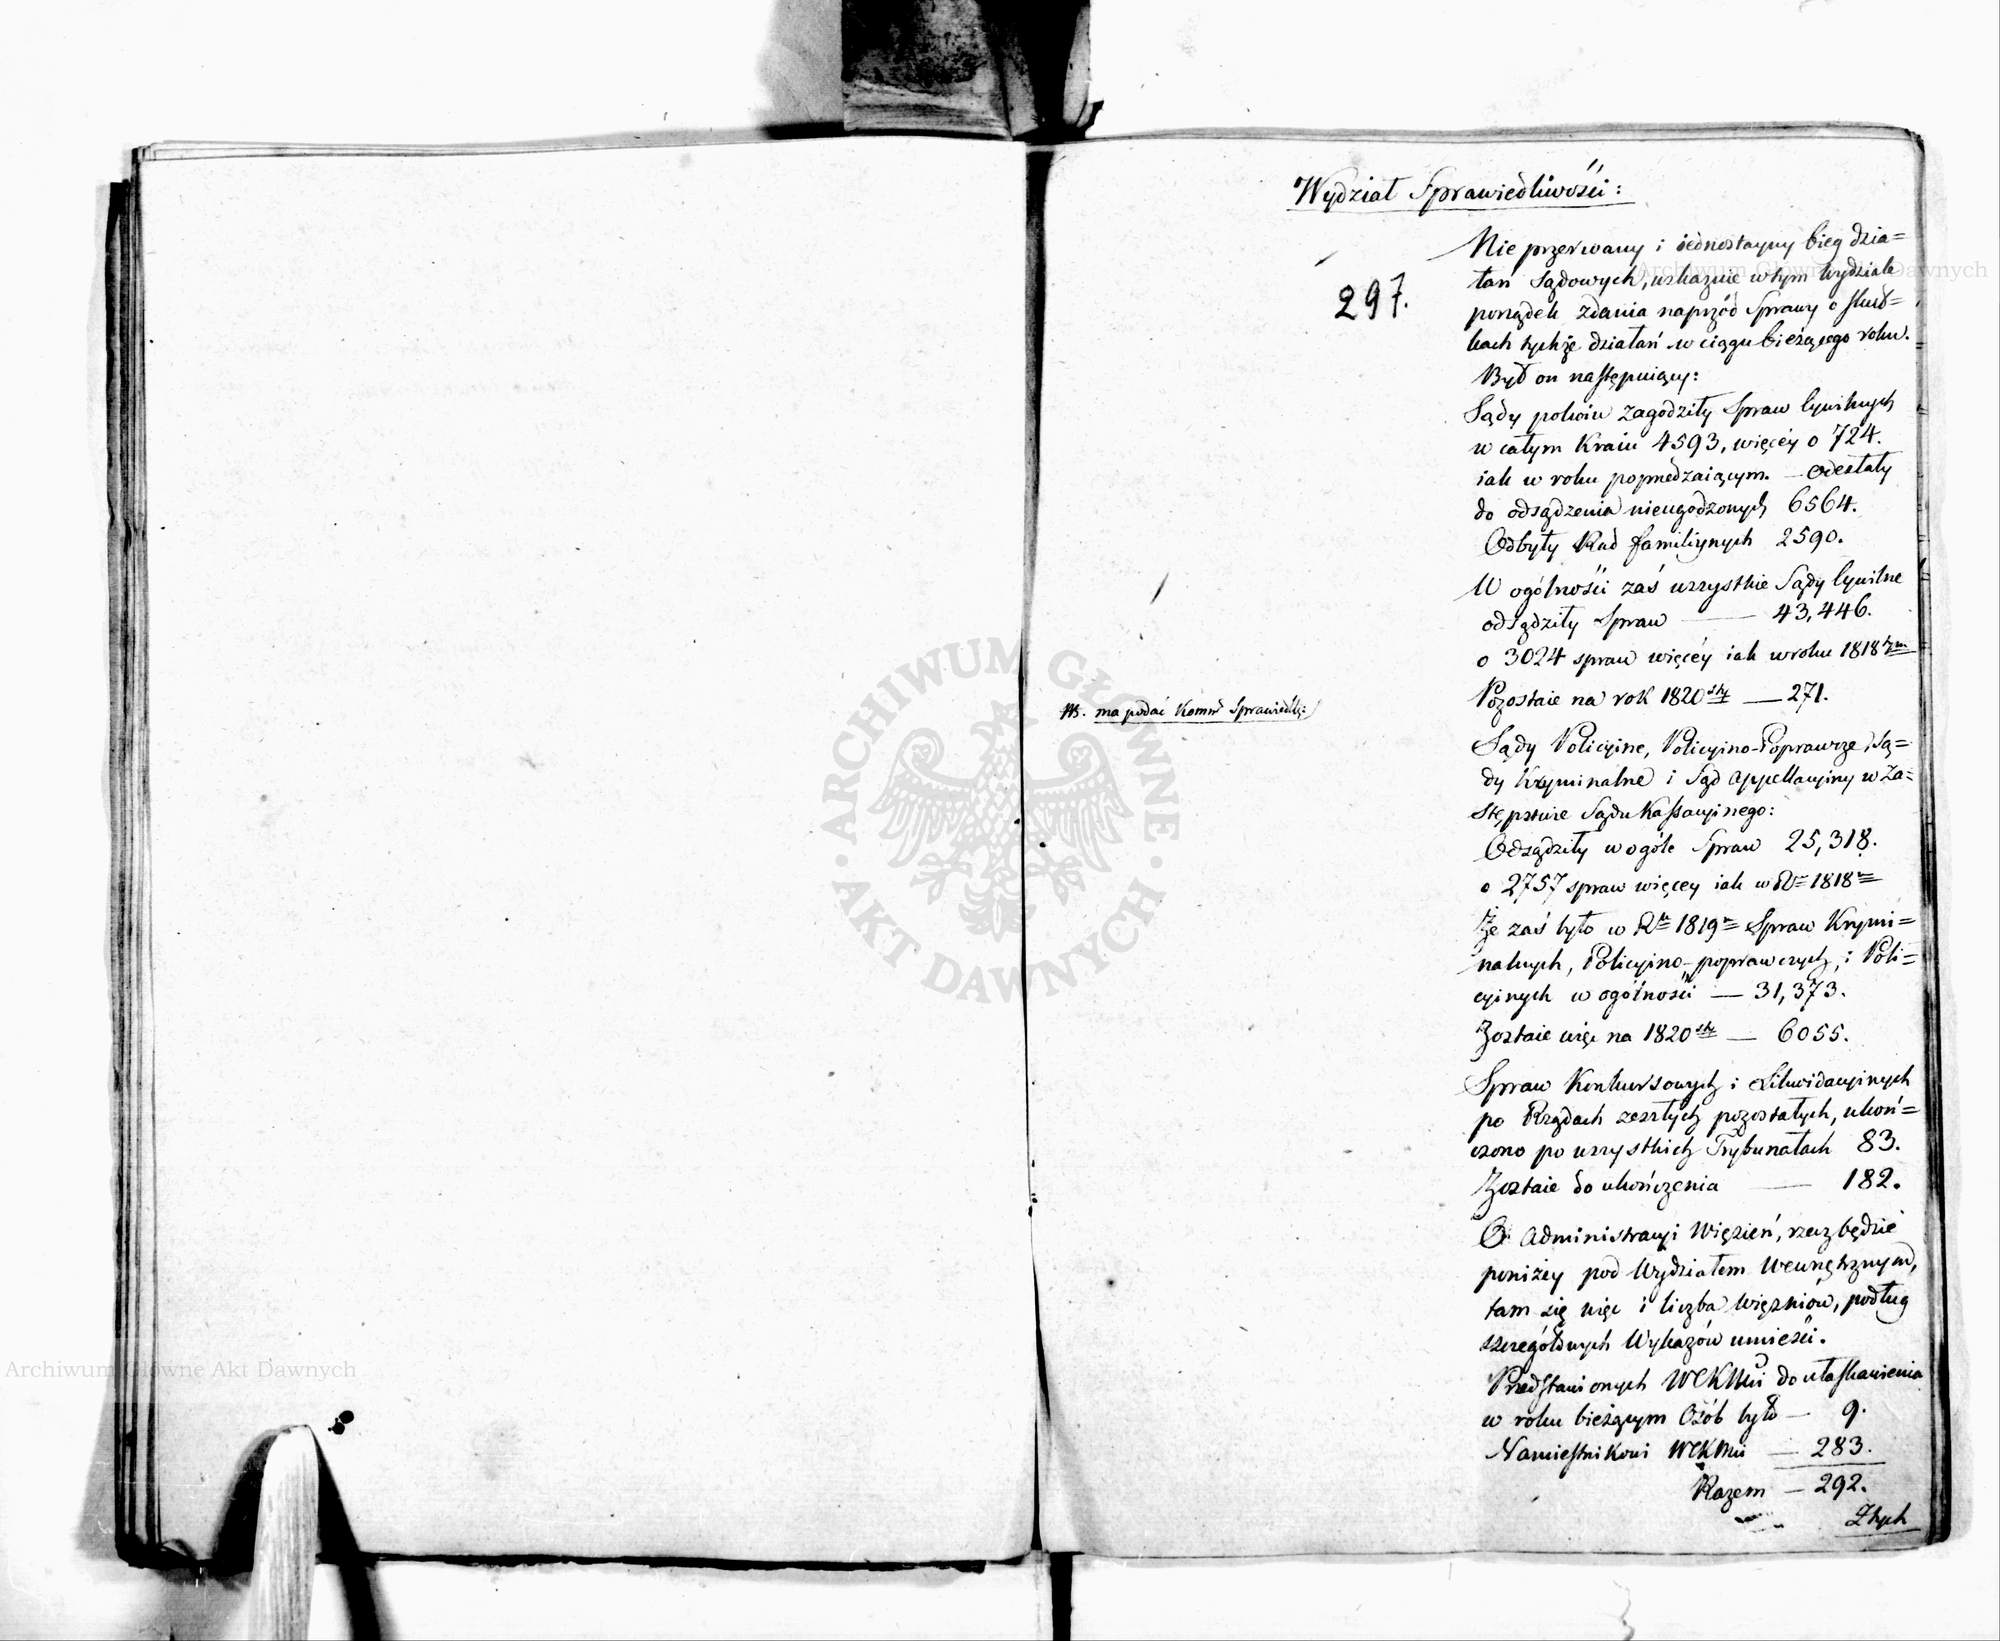 Wydział Sprawiedliwości:
297.
Nie przerwany i iednostayny bieg dzia=
łań Sądowych, wskazuie w tym wydziale
porządek zdania naprzód Sprawy o skut=
kach tychże działań w ciągu bieżącego roku.
Był on następuiący:
Sądy pokoiu zagodziły Spraw Cywilnych
w całym Kraiu 4593, więcéy o 724.
iak w roku poprzedzaiącym. — Odesłały
do odsądzenia nieugodzonych 6564.
Odbyły Rad familiynych 2590.
W ogólności zaś wszystkie Sądy Cywilne
odsądziły Spraw — 43,446.
o 3024 spraw więcéy iak w roku 1818tym
ma podać Kommis Sprawiedli:
Pozostaie na rok 1820sty — 271.
Sądy Policyine, Policyino-Poprawcze, Są=
dy Kryminalne i Sąd Appellacyiny w Za=
stępstwie Sądu Kassacyinego:
Odsądziły w ogóle Spraw 25,318.
o 2757 spraw więcey iak w Ru 1818m
Że zaś było w Rku 1819m Spraw Krymi=
nalnych, Policyino-poprawczych, i Poli=
cyinych w ogólności — 31,373.
Zostaie więc na 1820sty — 6055.
Spraw Konkursowych i Likwidacyinych
po Rządach zeszłych pozostałych, ukoń=
czono po wszystkich Trybunałach 83.
Zostaie do ukończenia — 182.
O Administracyi Więzień, rzecz będzie
poniżey pod Wydziałem Wewnętrznym,
tam się więc i liczba więźniow, podług
szczególnych Wykazów umieści.
Przedstawionych WCKMci do ułaskawienia
w roku bieżącym Osób było — 9.
Namiestnikowi WCKMci — 283.
Razem — 292.
Z tych
ARCHIWUM GŁÓWNE AKT DAWNYCH
Archiwum Główne Akt Dawnych
Archiwum Główne Akt Dawnych